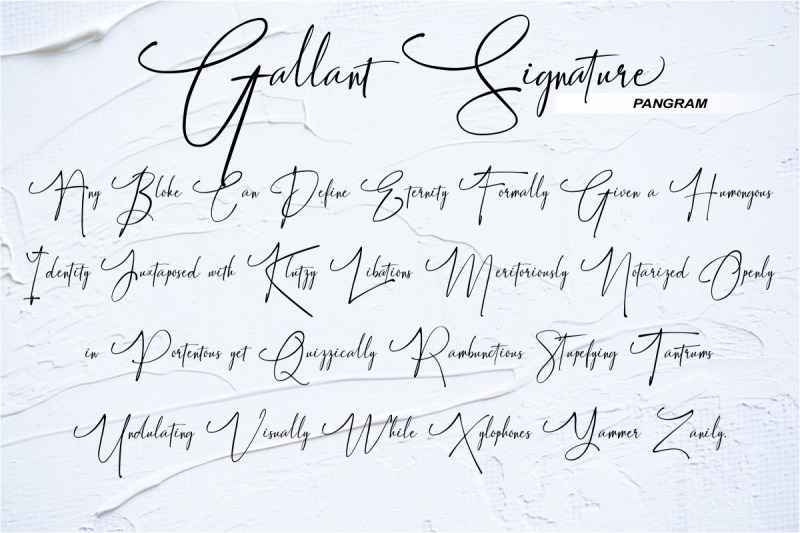 Gallant Signature
PANGRAM
Any Bloke Can Define Eternity Formally Given a Humongous
Identity Juxtaposed with Klutzy Libations Meritoriously Notarized Openly
in Portentous yet Quizzically Rambunctious Stupefying Tantrums
Undulating Visually While Xylophones Yammer Zanily.